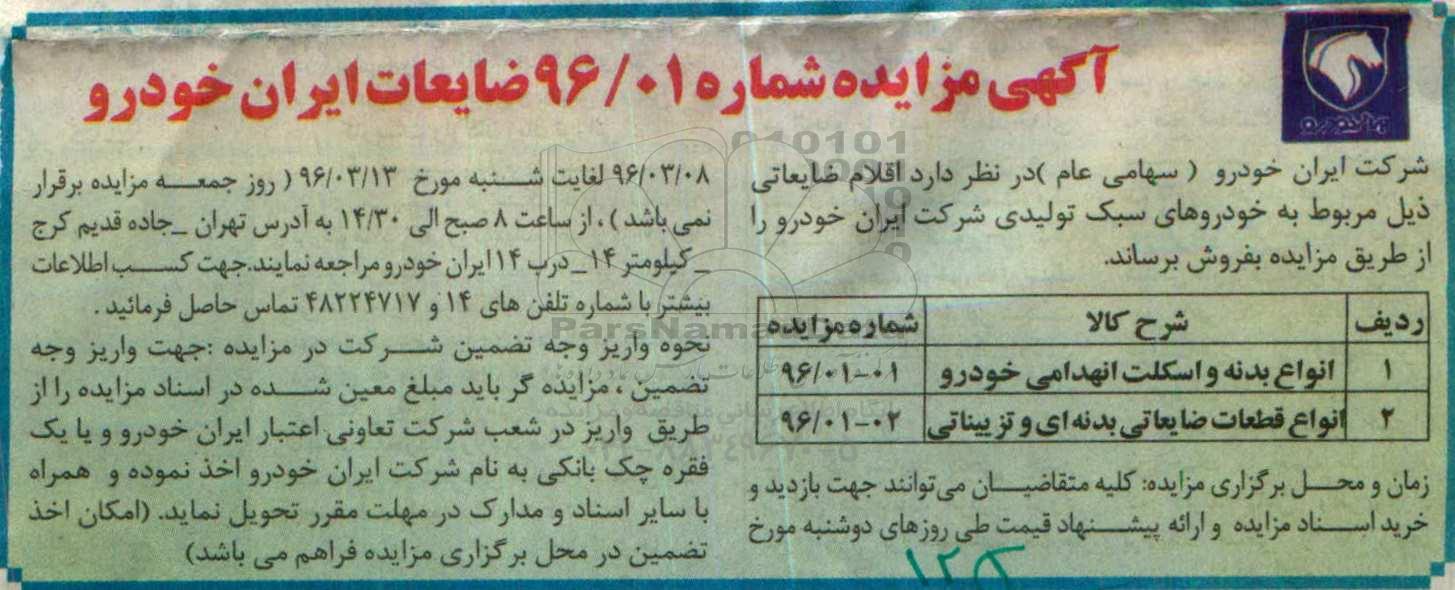 آگهی مزایده شماره ۹۶/۰۱ ضایعات ایران خودرو
شرکت ایران خودرو ( سهامی عام )در نظر دارد اقلام ضایعاتی
ذیل مربوط به خودروهای سبک تولیدی شرکت ایران خودرو را
از طریق مزایده بفروش برساند.
ردیف شرح کالا شماره مزایده
۱ انواع بدنه و اسکلت انهدامی خودرو ۹۶/۰۱-۰۱
۲ انواع قطعات ضایعاتی بدنه ای و تزییناتی ۹۶/۰۱-۰۲
زمان و محل برگزاری مزایده: کلیه متقاضیان می‌توانند جهت بازدید و
خرید اسناد مزایده و ارائه پیشنهاد قیمت طی روزهای دوشنبه مورخ
۹۶/۰۳/۰۸ لغایت شنبه مورخ ۹۶/۰۳/۱۳ ( روز جمعه مزایده برقرار
نمی باشد ) ، از ساعت ۸ صبح الی ۱۴/۳۰ به آدرس تهران _جاده قدیم کرج
_ کیلومتر ۱۴ _ درب ۱۴ ایران خودرو مراجعه نمایند.جهت کسب اطلاعات
بیشتر با شماره تلفن های ۱۴ و ۴۸۲۲۴۷۱۷ تماس حاصل فرمائید .
نحوه واریز وجه تضمین شرکت در مزایده :جهت واریز وجه
تضمین ، مزایده گر باید مبلغ معین شده در اسناد مزایده را از
طریق واریز در شعب شرکت تعاونی اعتبار ایران خودرو و یا یک
فقره چک بانکی به نام شرکت ایران خودرو اخذ نموده و همراه
با سایر اسناد و مدارک در مهلت مقرر تحویل نماید. (امکان اخذ
تضمین در محل برگزاری مزایده فراهم می باشد)